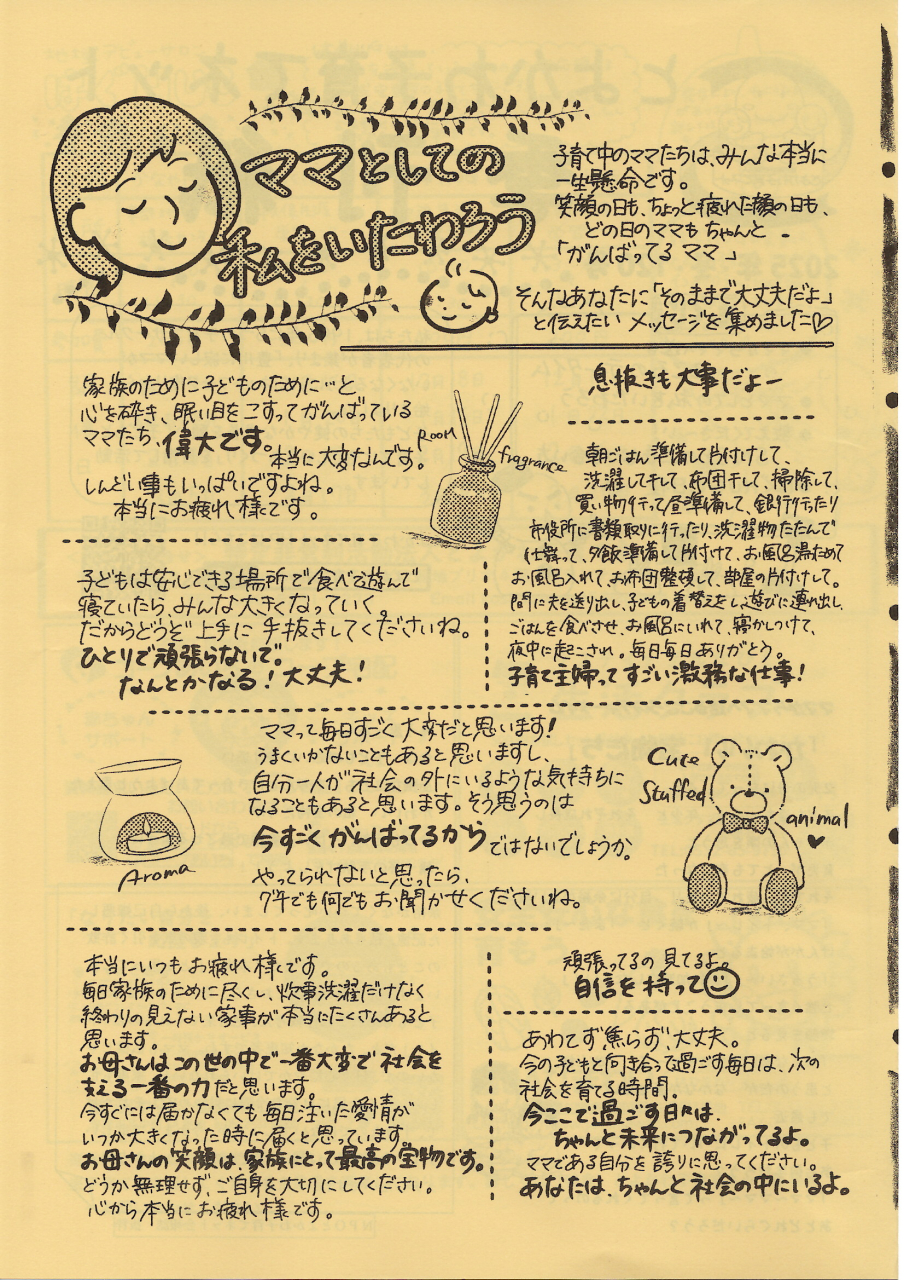 ママとしての
私をいたわろう
子育て中のママたちは、みんな本当に
一生懸命です。
笑顔の日も、ちょっと疲れた顔の日も、
どの日のママもちゃんと
「がんばってるママ」
そんなあなたに「そのままで大丈夫だよ」
と伝えたいメッセージを集めました♡
家族のために子どものために…と
心を砕き、眠い目をこすってがんばっている
ママたち、偉大です。
本当に大変なんです。
しんどい事もいっぱいですよね。
本当にお疲れ様です。
Room
fragrance
息抜きも大事だよー
朝ごはん準備して片付けして、
洗濯して干して、布団干して、掃除して、
買い物行って昼準備して、銀行行ったり
市役所に書類取りに行ったり、洗濯物たたんで
仕舞って、夕飯準備して片付けて、お風呂湯ためて
お風呂入れて、お布団整頓して、部屋の片付けして。
間に夫を送り出し、子どもの着替えをし、遊びに連れ出し、
ごはんを食べさせ、お風呂にいれて、寝かしつけて、
夜中に起こされ。毎日毎日ありがとう。
子育て主婦ってすごい激務な仕事!
子どもは安心できる場所で食べて遊んで
寝ていたら、みんな大きくなっていく。
だからどうぞ上手に手抜きしてくださいね。
ひとりで頑張らないで。
なんとかなる!大丈夫!
ママって毎日すごく大変だと思います!
うまくいかないこともあると思いますし、
自分一人が社会の外にいるような気持ちに
なることもあると思います。そう思うのは
今すごくがんばってるからではないでしょうか。
やってられないと思ったら、
グチでも何でもお聞かせくださいね。
Aroma
Cute
Stuffed
animal
本当にいつもお疲れ様です。
毎日家族のために尽くし、炊事洗濯だけなく
終わりの見えない家事が本当にたくさんあると
思います。
お母さんはこの世の中で一番大変で社会を
支える一番の力だと思います。
今すぐには届かなくても毎日注いだ愛情が
いつか大きくなった時に届くと思っています。
お母さんの笑顔は、家族にとって最高の宝物です。
どうか無理せず、ご自身を大切にしてください。
心から本当にお疲れ様です。
頑張ってるの見てるよ。
自信を持って
あわてず焦らず、大丈夫。
今の子どもと向き合って過ごす毎日は、次の
社会を育てる時間。
今ここで過ごす日々は、
ちゃんと未来につながってるよ。
ママである自分を誇りに思ってください。
あなたは、ちゃんと社会の中にいるよ。